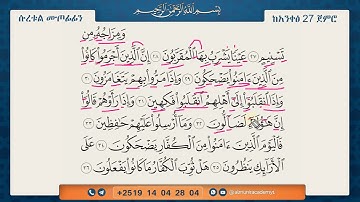 ሱረቱል ሙጦፊፊን
بِسْمِ اللَّهِ الرَّحْمَٰنِ الرَّحِيمِ
ከአንቀፅ 27 ጀምሮ
وَمِزَاجُهُۥ مِن
تَسْنِيمٍ ٢٧ عَيْنًا يَشْرَبُ بِهَا ٱلْمُقَرَّبُونَ ٢٨ إِنَّ ٱلَّذِينَ أَجْرَمُوا۟ كَانُوا۟
مِنَ ٱلَّذِينَ ءَامَنُوا۟ يَضْحَكُونَ ٢٩ وَإِذَا مَرُّوا۟ بِهِمْ يَتَغَامَزُونَ ٣٠
وَإِذَا ٱنقَلَبُوٓا۟ إِلَىٰٓ أَهْلِهِمُ ٱنقَلَبُوا۟ فَكِهِينَ ٣١ وَإِذَا رَأَوْهُمْ قَالُوٓا۟
إِنَّ هَٰٓؤُلَآءِ لَضَآلُّونَ ٣٢ وَمَآ أُرْسِلُوا۟ عَلَيْهِمْ حَٰفِظِينَ ٣٣
فَٱلْيَوْمَ ٱلَّذِينَ ءَامَنُوا۟ مِنَ ٱلْكُفَّارِ يَضْحَكُونَ ٣٤ عَلَى
ٱلْأَرَآئِكِ يَنظُرُونَ ٣٥ هَلْ ثُوِّبَ ٱلْكُفَّارُ مَا كَانُوا۟ يَفْعَلُونَ ٣٦
+2519 14 04 28 04